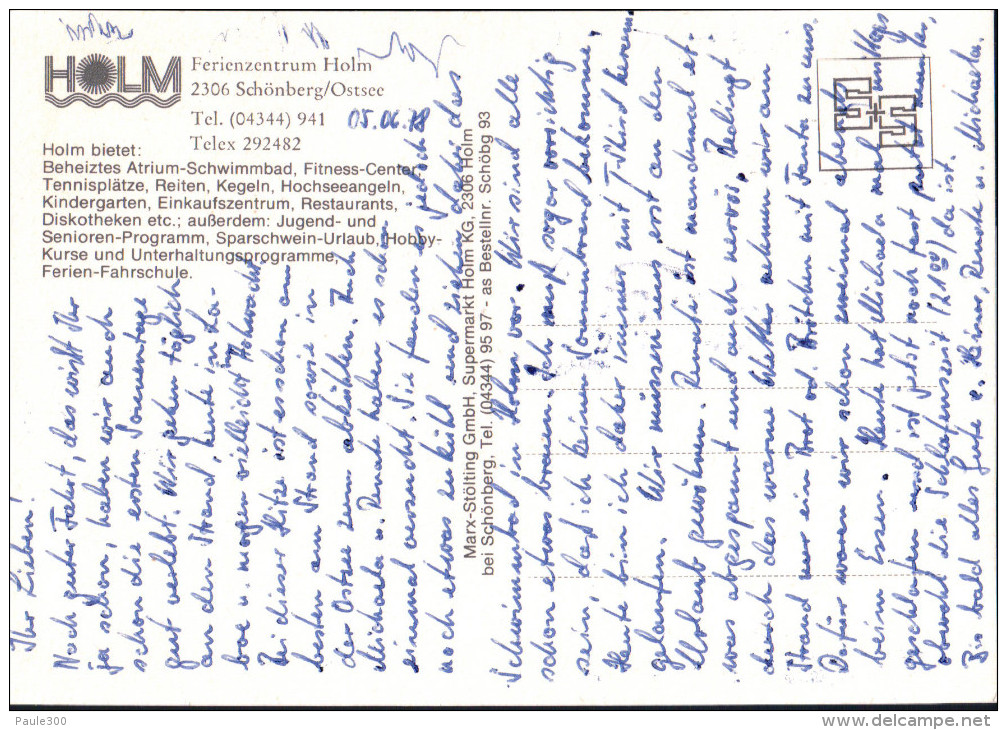 HOLM
Ferienzentrum Holm
2306 Schönberg/Ostsee
Tel. (04344) 941
Telex 292482
05.06.78
Holm bietet:
Beheiztes Atrium-Schwimmbad, Fitness-Center,
Tennisplätze, Reiten, Kegeln, Hochseeangeln,
Kindergarten, Einkaufszentrum, Restaurants,
Diskotheken etc.; außerdem: Jugend- und
Senioren-Programm, Sparschwein-Urlaub, Hobby-
Kurse und Unterhaltungsprogramme,
Ferien-Fahrschule.
Ihr Lieben!
Nach guter Fahrt, das wißt Ihr
ja schon, haben wir auch
schon die ersten Sonnentage
gut verlebt. Wir gehen täglich
an den Strand, heute in La-
boe u. morgen vielleicht in Hohwacht
Bei dieser Hitze ist es schon am
besten am Strand sowie in
der Ostsee zum abkühlen. Auch
Michaela u. Renate haben es schon
einmal versucht. Sie fanden es jedoch
noch etwas zu kühl und ziehen daher das
Marx-Stölting GmbH, Supermarkt Holm KG, 2306 Holm
bei Schönberg, Tel. (04344) 95 97 - as Bestellnr. Schöbg 93
Schwimmbad in Holm vor. Wir sind alle
schon etwas braun, ich muß sogar vorsichtig
sein, daß ich keinen Sonnenbrand bekomme.
Heute bin ich daher immer mit T-Shird herum
gelaufen. Wir müssen uns erst an den
Urlaub gewöhnen. Renate ist manchmal et-
was abgespannt und auch nervös. Bedingt
durch das warme Wetter nehmen wir am
Strand nur ein Brot od. Brötchen mit Fanta zu uns.
Dafür waren wir schon einmal abends
beim Essen. Heute hat Michaela mal mittags
geschlafen und ist jetzt noch fast putzmunter,
obwohl die Schlafenszeit (21.00) da ist.
Bis bald alles Gute e. Heiner, Renate u. Michaela.
Paule300
delcampe.net